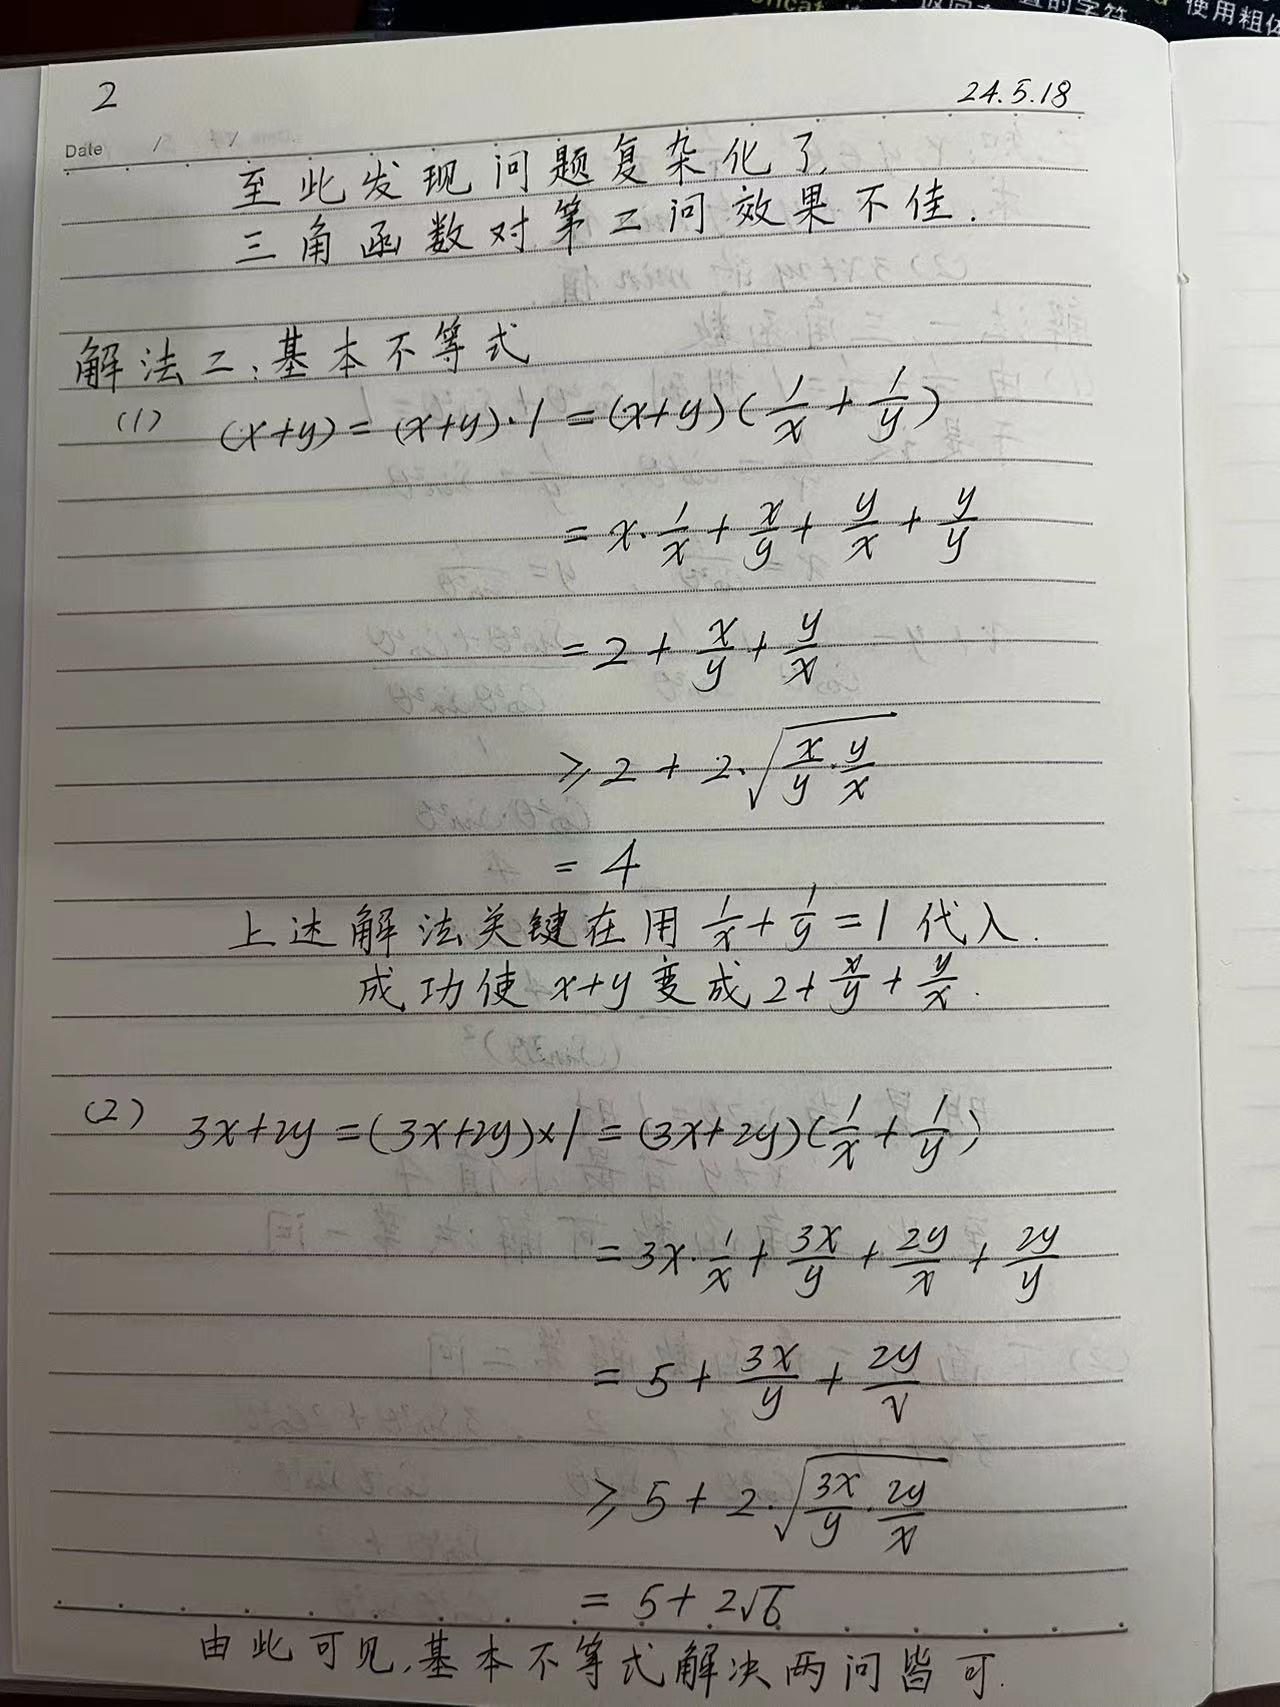 使用粗体
2
24.5.18
Date / /
至此发现问题复杂化了,
三角函数对第二问效果不佳.
解法二:基本不等式
(1) (x+y) = (x+y)·1 = (x+y)(1/x + 1/y)
= x·1/x + x/y + y/x + y/y
= 2 + x/y + y/x
≥ 2 + 2·√(x/y · y/x)
= 4
上述解法关键在用 1/x + 1/y = 1 代入.
成功使 x+y 变成 2 + x/y + y/x.
(2) 3x+2y = (3x+2y)×1 = (3x+2y)(1/x + 1/y)
= 3x·1/x + 3x/y + 2y/x + 2y/y
= 5 + 3x/y + 2y/x
≥ 5 + 2·√(3x/y · 2y/x)
= 5 + 2√6
由此可见,基本不等式解决两问皆可.